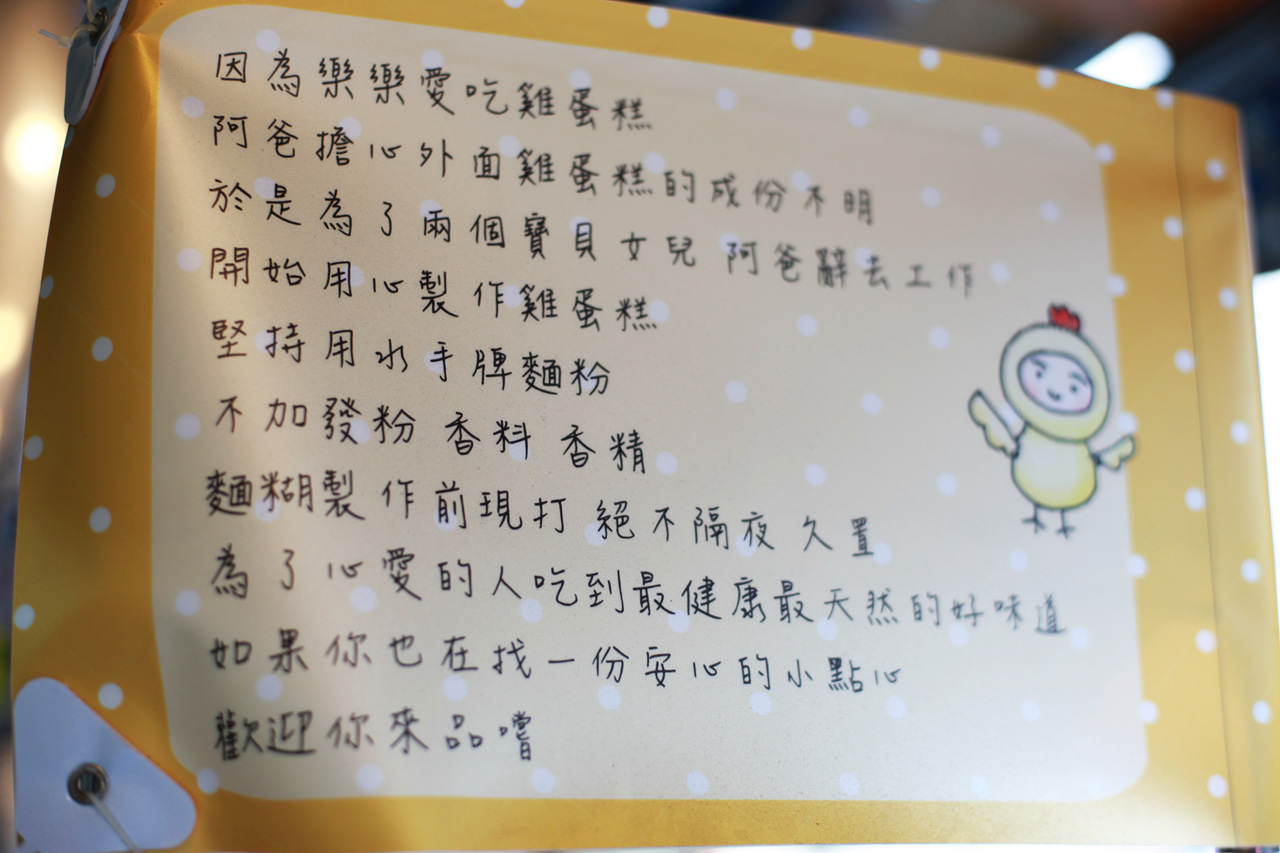 因為樂樂愛吃雞蛋糕
阿爸擔心外面雞蛋糕的成份不明
於是為了兩個寶貝女兒 阿爸辭去工作
開始用心製作雞蛋糕
堅持用水手牌麵粉
不加發粉 香料 香精
麵糊製作前現打 絕不隔夜 久置
為了心愛的人吃到最健康最天然的好味道
如果你也在找一份安心的小點心
歡迎你來品嚐